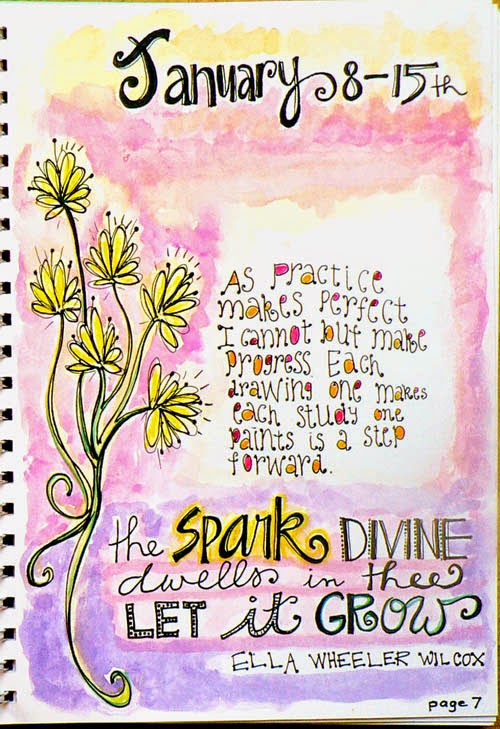 January 8-15th
As Practice
makes Perfect
I cannot but make
Progress. Each
drawing one makes
each study one
paints is a step
forward.
the Spark DIVINE
dwells in thee
LET it GROW
ELLA WHEELER WILCOX
page 7